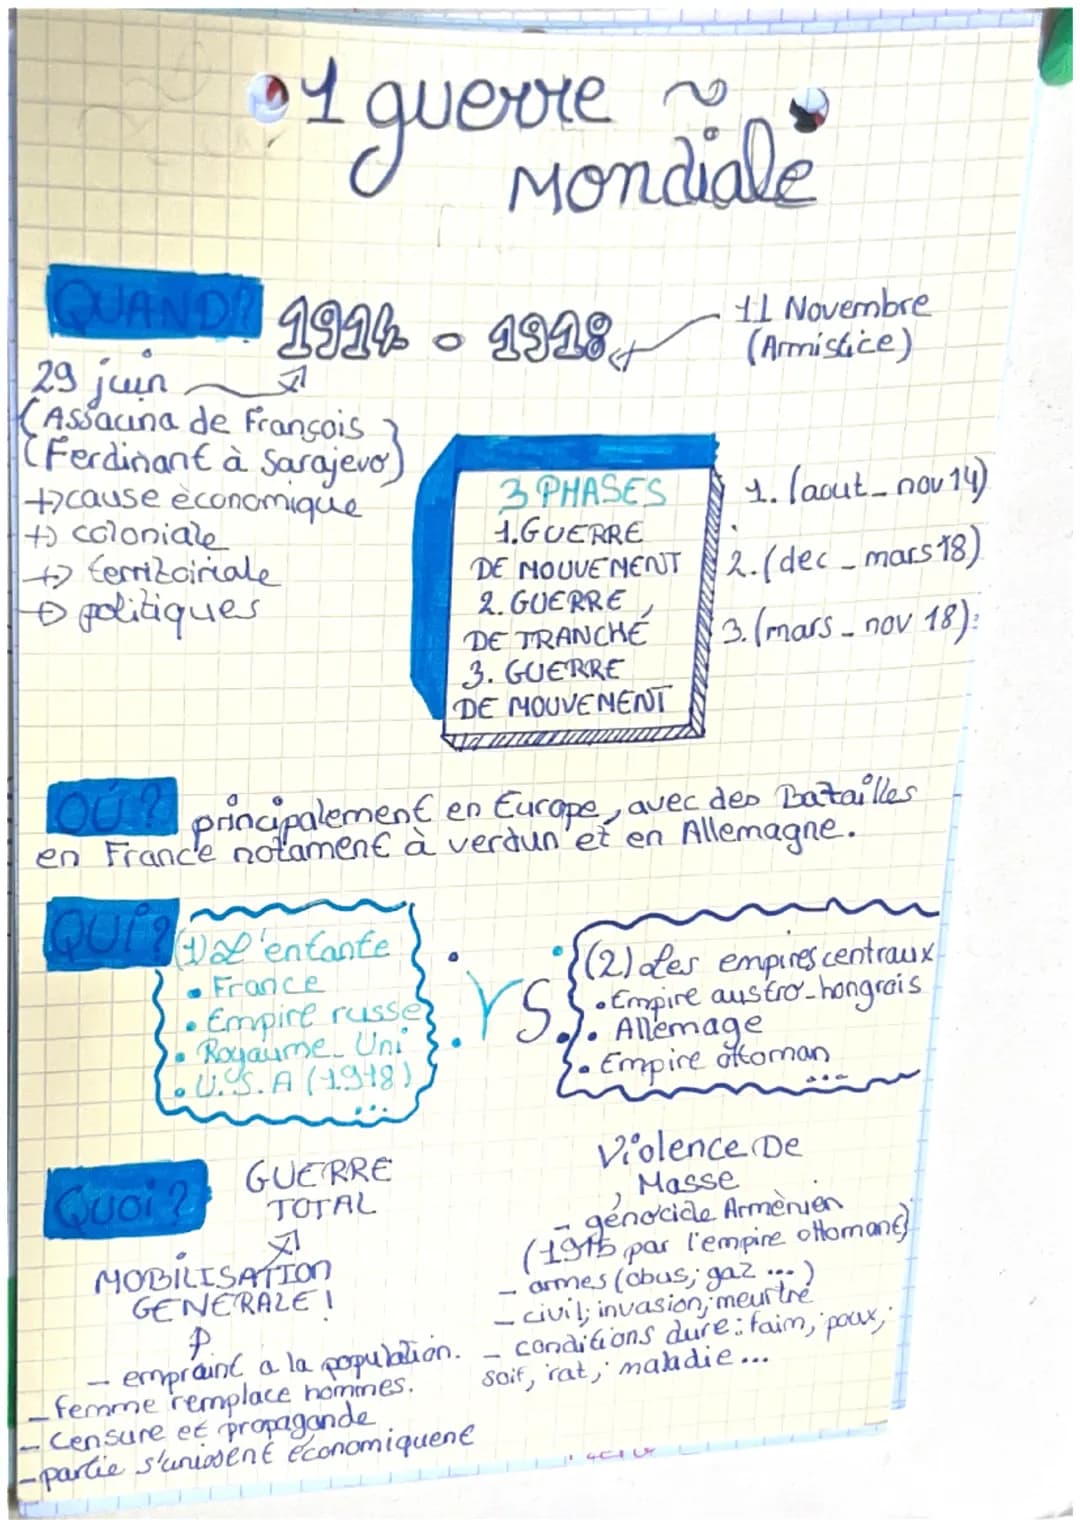 1 guerre
Mondiale
QUAND?
1914 - 1918
11 Novembre
(Armistice)
29 juin
(Assacina de François
(Ferdinant à Sarajevo)
+> cause èconomique
+> coloniale
+> territoiriale
+> politiques
3 PHASES
1. GUERRE
DE MOUVEMENT
2. GUERRE
DE TRANCHÉ
3. GUERRE
DE MOUVEMENT
1. (aout - nov 14)
2. (dec - mars 18)
3. (mars - nov 18):
OÙ?
principalement en Europe, avec des Batailles
en France notament à verdun et en Allemagne.
QUI?
(1) L'entante
• France
• Empire russe
• Royaume-Uni
• U.S.A (1918)
...
VS
(2) Les empires centraux
• Empire austro-hongrais
• Allemage
• Empire ottoman
...
Quoi?
GUERRE
TOTAL
MOBILISATION
GENERALE!
- empraint a la population.
- femme remplace hommes.
- censure et propagande
- partie s'unissent économiquene
Violence De
Masse
- génocide Armènien
(1915 par l'empire ottomane)
- armes (obus; gaz ...)
- civil; invasion; meurtre
- conditions dure: faim; poux;
soif, rat; maladie...